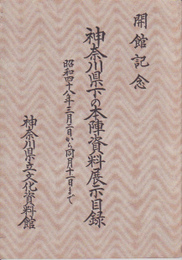 開館記念
神奈川県下の本陣資料展示目録
昭和四十八年三月一日から同月十一日まで
神奈川県立文化資料館